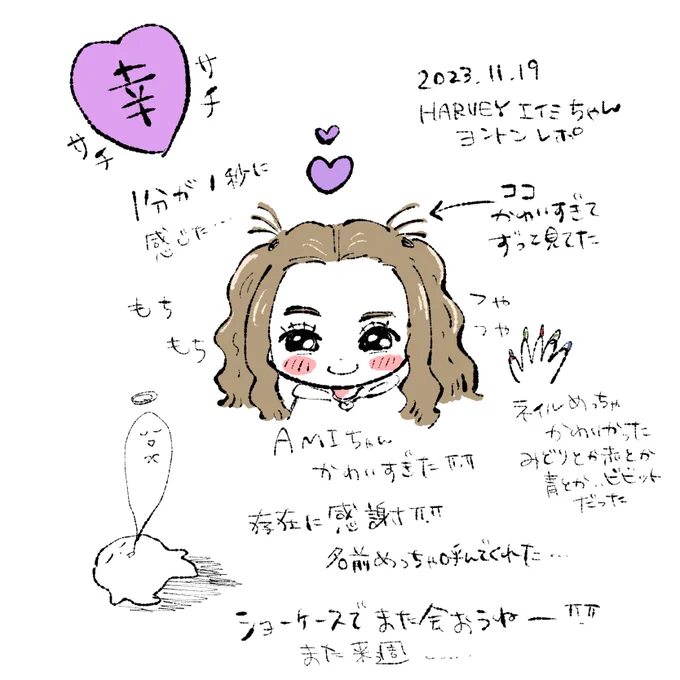 幸
サチ
サチ
2023.11.19
HARVEY エイミちゃん
ヨントンレポ
1分が1秒に
感じた…
ココ
かわいすぎて
ずっと見てた
もち
もち
つや
つや
ネイルめっちゃ
かわいかった
みどりとか赤とか
青とか..ビビット
だった
AMIちゃん
かわいすぎた TT.TT
存在に感謝す TT.TT
名前めっちゃ呼んでくれた…
ショーケースでまた会おうねー TT.TT
また来週 ……